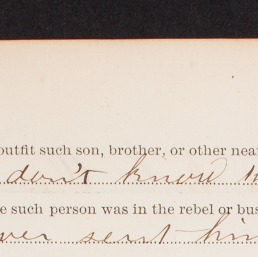 outfit such son, brother, or other nea
don't know
e such person was in the rebel or bus
ver sent him